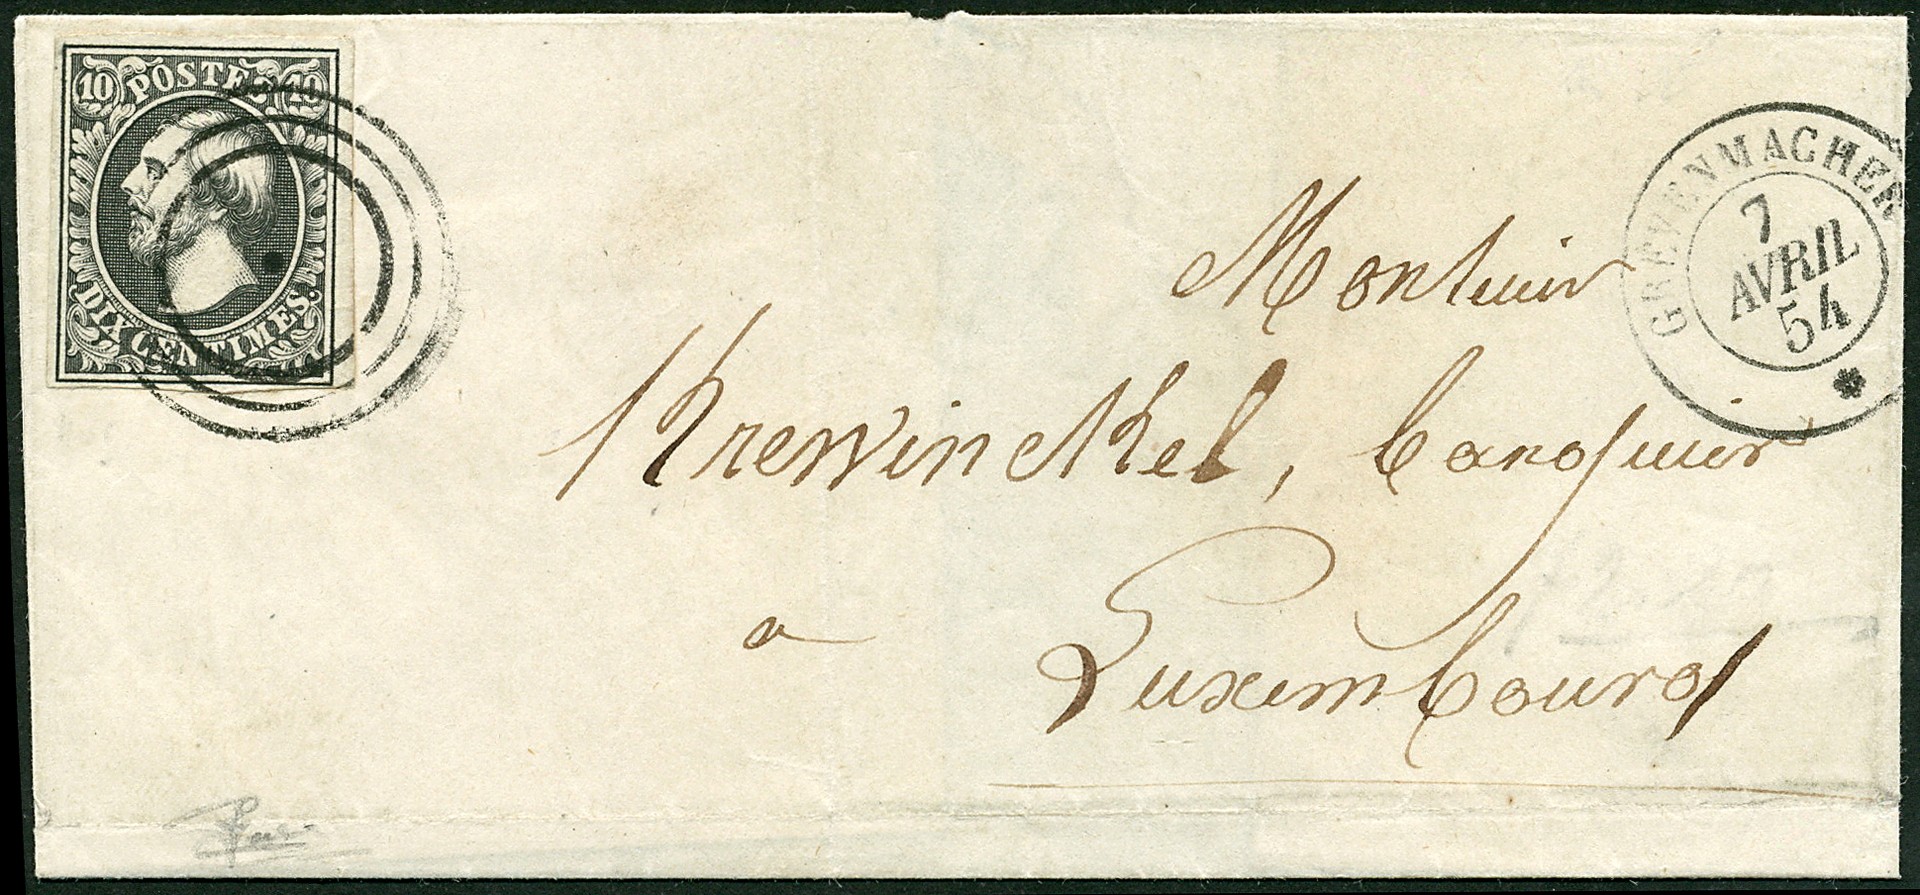 10 POSTES 10
DIX CENTIMES.
GREVENMACHER
7
AVRIL
54
Monsieur
Krewinckel, banquier
a
Luxembourg